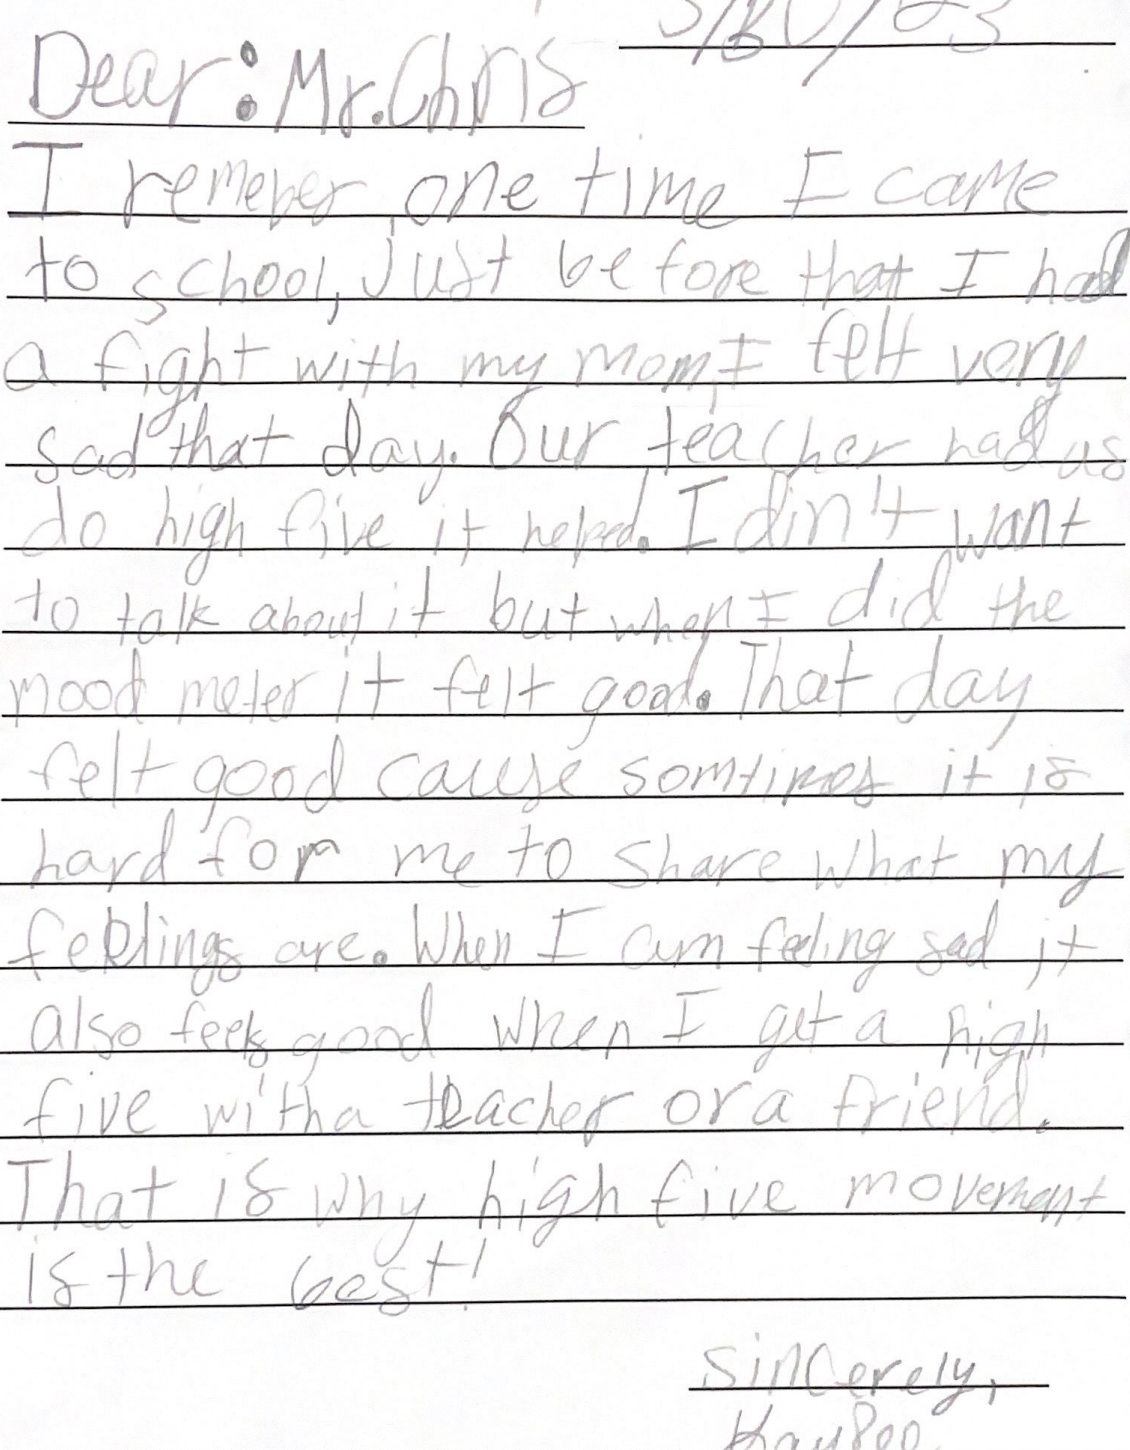 Dear: Mr. Chris
I remeber one time I came
to school, Just before that I had
a fight with my mom, I felt very
sad that day. Our teacher had us
do high five it helped. I din't want
to talk about it but when I did the
mood meter it felt good. That day
felt good cause somtimes it is
hard for me to share what my
feelings are. When I am feeling sad it
also feels good when I get a high
five with a teacher or a friend.
That is why high five movement
is the best!
Sincerely,